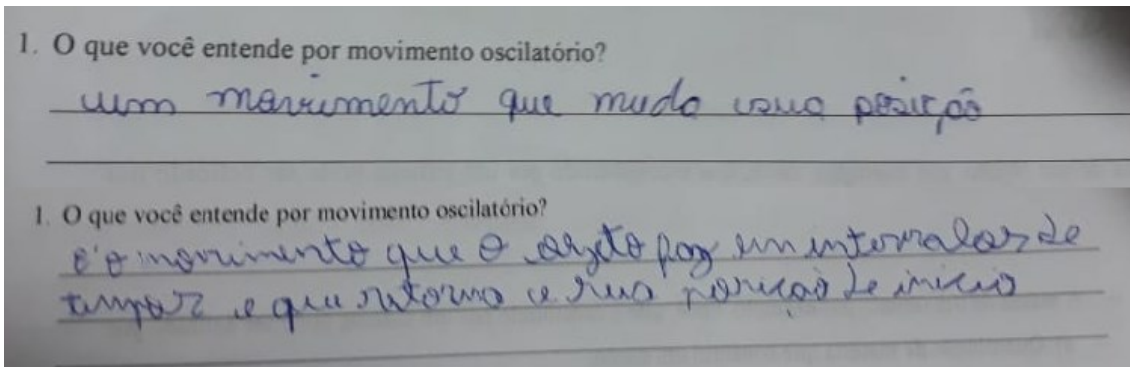 1. O que você entende por movimento oscilatório?
um movimento que muda sua posição
1. O que você entende por movimento oscilatório?
é o movimento que o objeto faz em intervalos de
tempos e que retorna a sua posição de inicio